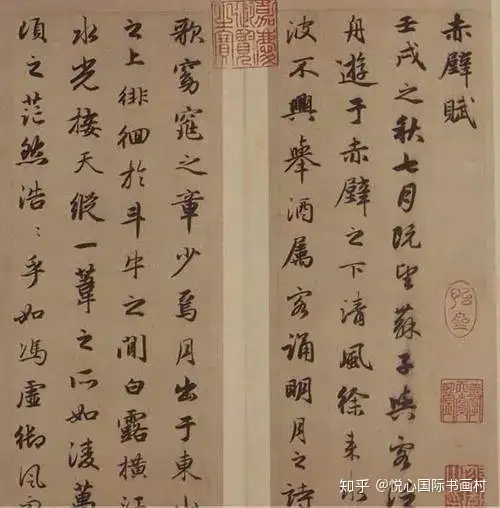 赤壁賦
壬戌之秋七月既望蘇子與客泛
舟遊于赤壁之下清風徐來水
波不興舉酒屬客誦明月之詩
嘉慶御覽之寶
歌窈窕之章少焉月出于東山
之上徘徊於斗牛之間白露橫江
水光接天縱一葦之所如淩萬
頃之茫然浩〻乎如馮虛御風而
知乎 @悦心国际书画村